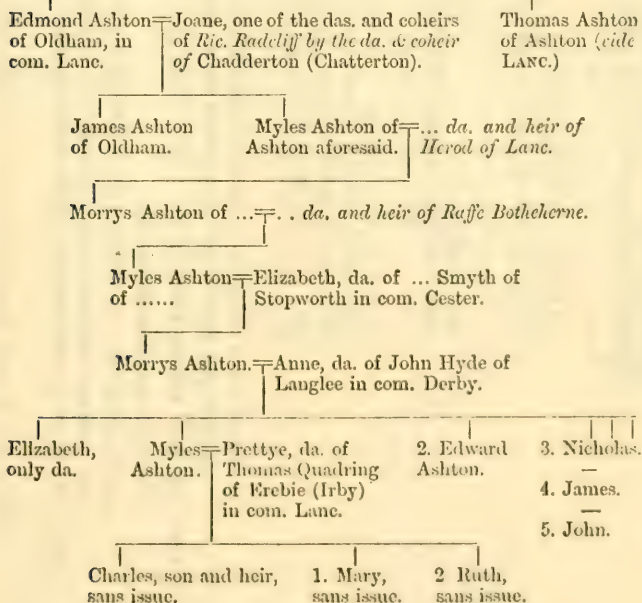 Edmond Ashton=Joane, one of the das. and coheirs
of Oldham, in of Ric. Radcliff by the da. & coheir
com. Lanc. of Chadderton (Chatterton).
Thomas Ashton
of Ashton (vide
LANC.)
James Ashton
of Oldham.
Myles Ashton of=... da. and heir of
Ashton aforesaid. Herod of Lanc.
Morrys Ashton of ...=. . da. and heir of Raffe Botheherne.
Myles Ashton=Elizabeth, da. of ... Smyth of
of ...... Stopworth in com. Cester.
Morrys Ashton.=Anne, da. of John Hyde of
Langlee in com. Derby.
Elizabeth,
only da.
Myles=Prettye, da. of
Ashton. Thomas Quadring
of Erebie (Irby)
in com. Lanc.
2. Edward
Ashton.
3. Nicholas.
—
4. James.
—
5. John.
Charles, son and heir,
sans issue.
1. Mary,
sans issue.
2 Ruth,
sans issue.